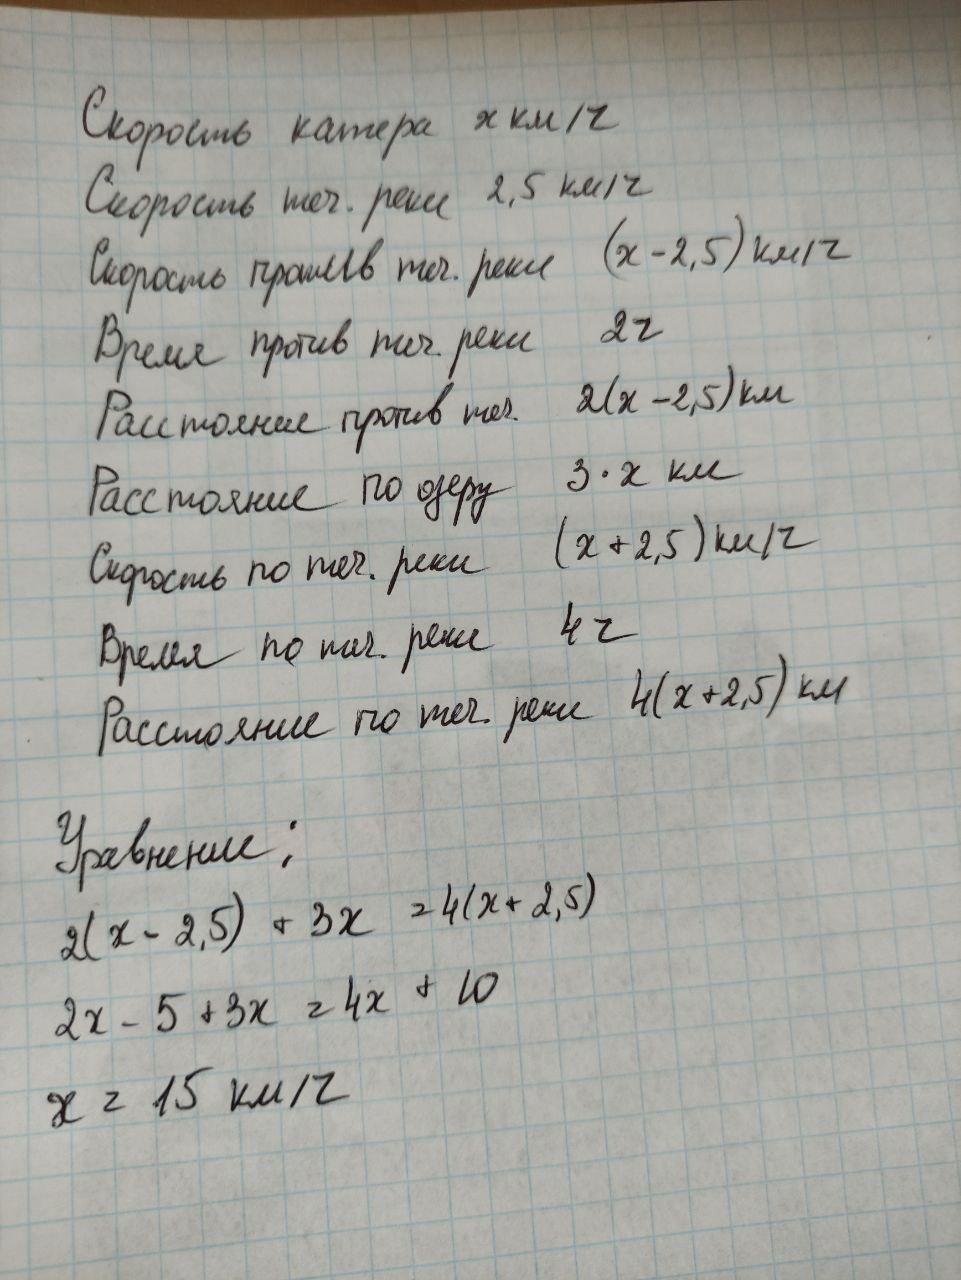 Скорость катера x км/ч
Скорость теч. реки 2,5 км/ч
Скорость против теч. реки (x-2,5) км/ч
Время против теч. реки 2ч
Расстояние против теч. 2(x-2,5) км
Расстояние по озеру 3·x км
Скорость по теч. реки (x+2,5) км/ч
Время по теч. реки 4ч
Расстояние по теч. реки 4(x+2,5) км
Уравнение:
2(x-2,5) + 3x = 4(x+2,5)
2x - 5 + 3x = 4x + 10
x = 15 км/ч